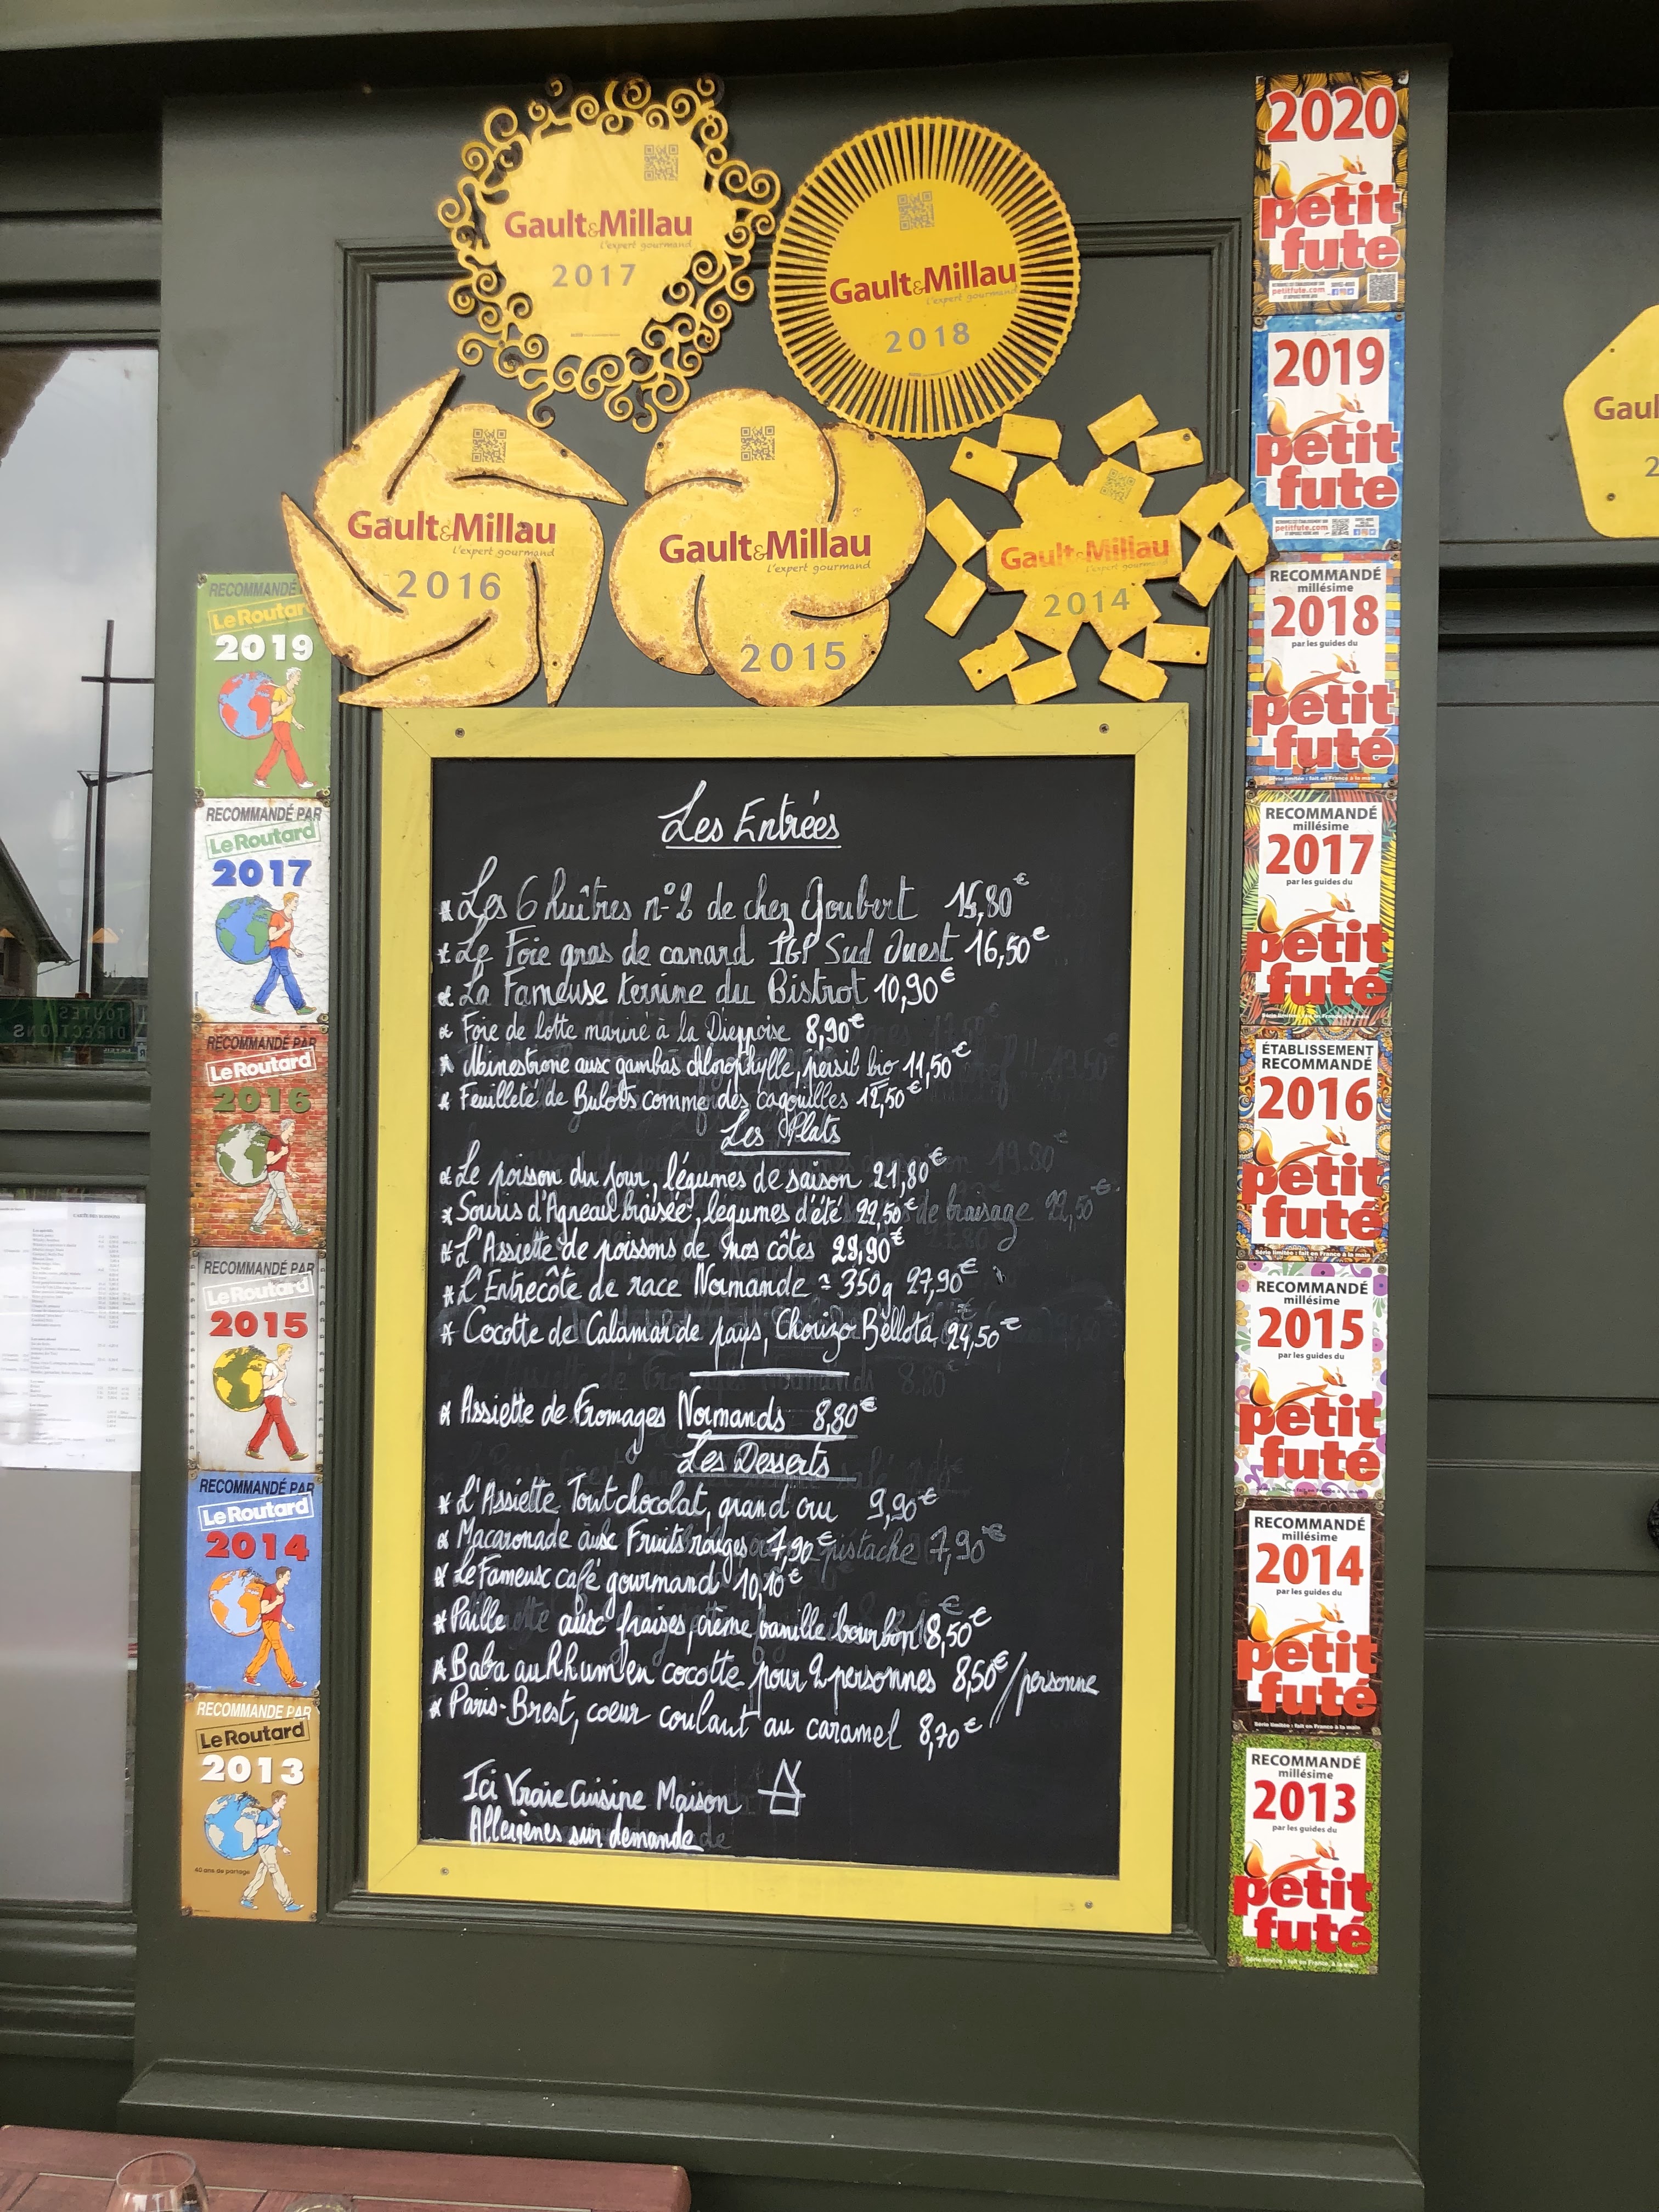 Gault&Millau
l'expert gourmand
2017
Gault&Millau
l'expert gourmand
2018
Gault&Millau
l'expert gourmand
2016
Gault&Millau
l'expert gourmand
2015
Gault&Millau
l'expert gourmand
2014
Gaul
2
RECOMMANDÉ
Le Routard
2019
RECOMMANDÉ PAR
Le Routard
2017
RECOMMANDÉ PAR
Le Routard
2016
RECOMMANDÉ PAR
Le Routard
2015
RECOMMANDÉ PAR
Le Routard
2014
RECOMMANDÉ PAR
Le Routard
2013
40 ans de partage
TOUTES
DIRECTIONS
Les Entrées
Les 6 huîtres n°2 de chez Goubert 15,80€
Le Foie gras de canard IGP Sud Ouest 16,50€
La Fameuse terrine du Bistrot 10,90€
Foie de lotte mariné à la Dieppoise 8,90€
Minestrone aux gambas chlorophylle, persil bio 11,50€
Feuilleté de Bulots comme des cagouilles 12,50€
Les Plats
Le poisson du jour, légumes de saison 21,80€
Souris d'Agneau braisée, legumes d'été 22,50€ de braisage 22,50€
L'Assiette de poissons de nos côtes 29,90€
L'Entrecôte de race Normande ≈ 350g 27,90€
Cocotte de Calamar de pays, Chorizo Bellota 24,50€
Assiette de Fromages Normands 8,80€
Les Desserts
L'Assiette Tout chocolat, grand cru 9,90€
Macaronade aux Fruits rouges 7,90€ pistache 7,90€
Le Fameux café gourmand 10,10€
Paille aux fraises, crème vanille bourbon 8,50€
Baba au Rhum en cocotte pour 2 personnes 8,50€/personne
Paris-Brest, coeur coulant au caramel 8,70€
Ici Vraie Cuisine Maison
Allergènes sur demande
2020
petit
fute
petitfute.com
2019
petit
fute
petitfute.com
RECOMMANDÉ
millésime
2018
par les guides du
petit
futé
Série limitée : fait en France à la main
RECOMMANDÉ
millésime
2017
par les guides du
petit
futé
Série limitée : fait en France à la main
ÉTABLISSEMENT
RECOMMANDÉ
2016
petit
futé
Série limitée : fait en France à la main
RECOMMANDÉ
millésime
2015
par les guides du
petit
futé
RECOMMANDÉ
millésime
2014
par les guides du
petit
futé
Série limitée : fait en France à la main
RECOMMANDÉ
millésime
2013
par les guides du
petit
futé
Série limitée : fait en France à la main